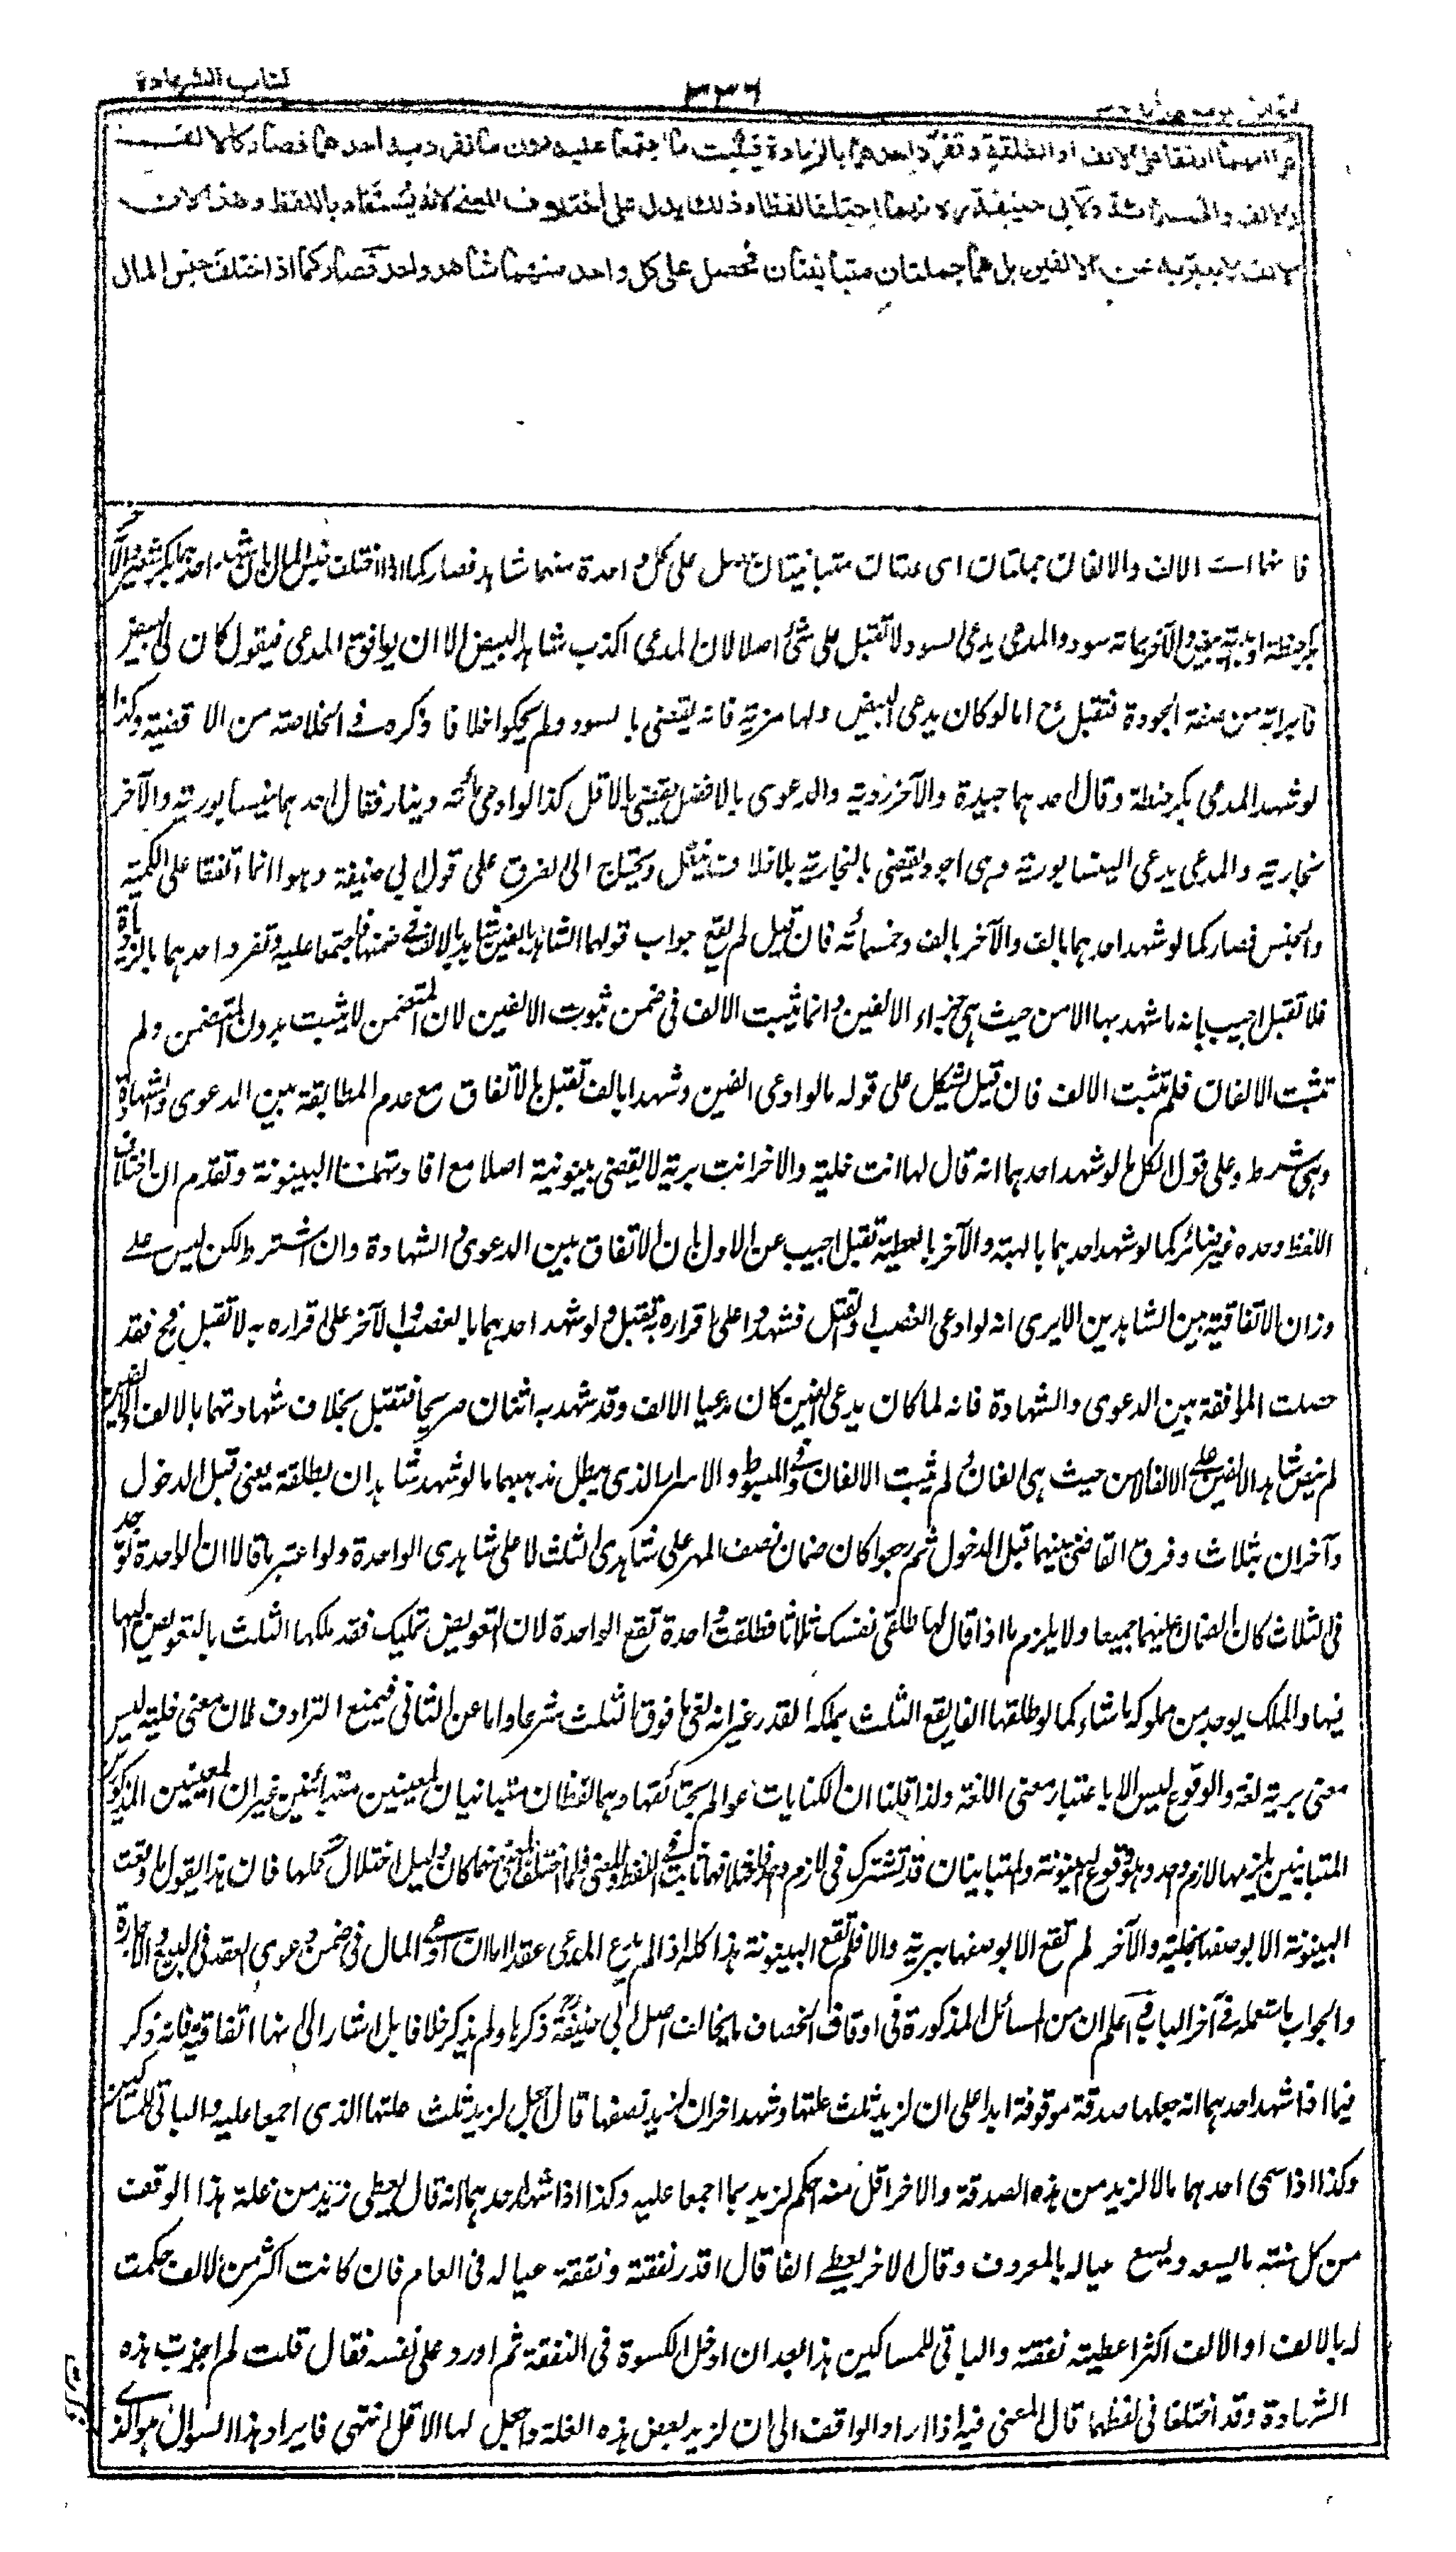 كتاب الشهادة
٣٣٦
انهما اتفقا على الالف او الطلقة وتفرد احدهما بالزيادة فيثبت ما اجتمعا عليه دون ما تفرد به احدهما فصار كالالف
والالف والخمسمائة ولابي حنيفة رح انهما اختلفا لفظا وذلك يدل على اختلاف المعنى لانه يستفاد باللفظ وهذا لان
الالف لا يعبر به عن الالفين بل هما جملتان متباينتان فحصل على كل واحد منهما شاهد واحد فصار كما اذا اختلف جنس المال
فانهما اى الالف والالفان جملتان اى عددان متباينتان حصل على كل واحدة منهما شاهد فصار كما اذا اختلف جنس المال بان شهد احدهما بكر شعير والآخر
بكر حنطة او بمائة بيض والآخر بمائة سود والمدعى يدعى السود لا تقبل على شئ اصلا لان المدعى اكذب شاهد البيض الا ان يوافق المدعى فيقول كان لى البيض
فابرأته من صفة الجودة فتقبل ح اما لو كان يدعى البيض ولها مزية فانه يقضى بالسود ولم يحكوا خلافا ذكره فى الخلاصة من الاقضية وكذا
لو شهد المدعى بكر حنطة وقال احدهما جيدة والآخر ردية والدعوى بالافضل يقضى بالاقل كذا لو ادعى مائة دينار فقال احدهما نيسابورية والآخر
بخارية والمدعى يدعى النيسابورية وهى اجود يقضى بالبخارية بلا خلاف ينقل ويحتاج الى الفرق على قول ابى حنيفة وهو انما اتفقا على الكمية
والجنس فصار كما لو شهد احدهما بالف والآخر بالف وخمسمائة فان قيل لم يقع جواب قولهما الشاهد بالفين شاهد بالالف فى ضمنها فاجتمعا عليه وتفرد احدهما بالزيادة
فلا تقبل اجيب بانه ما شهد بها الا من حيث هى جزاء الالفين وانما يثبت الالف فى ضمن ثبوت الالفين لان المتضمن لا يثبت بدون المتضمن ولم
تثبت الالفان فلم تثبت الالف فان قيل يشكل على قوله ما لو ادعى الفين وشهدا بالف تقبل بالاتفاق مع عدم المطابقة بين الدعوى والشهادة
وهى شرط وعلى قول الكل ما لو شهد احدهما انه قال لها انت خلية والاخر انت برية لا يقضى ببينونة اصلا مع افادتهما البينونة وتقدم ان اختلاف
اللفظ وحده غير ضائر كما لو شهد احدهما بالهبة والآخر بالعطية تقبل اجيب عن الاول بان الاتفاق بين الدعوى والشهادة وان اشترط لكن ليس على
وزان الاتفاقية بين الشاهدين الا يرى انه لو ادعى الغصب او القتل فشهدوا على اقراره به تقبل ولو شهد احدهما بالغصب والآخر على اقراره به لا تقبل فح فقد
حصلت الموافقة بين الدعوى والشهادة فانه لما كان يدعى الفين كان مدعيا الالف وقد شهد به اثنان صريحا فتقبل بخلاف شهادتهما بالالف والالفين
لم ينص شاهد الالفين على الالف الا من حيث هى الفان ولم تثبت الالفان وفى المبسوط والاسرار الذى يبطل مذهبهما ما لو شهد شاهدان بطلقة يعنى قبل الدخول
وآخران بثلاث وفرق القاضى بينهما قبل الدخول ثم رجعوا كان ضمان نصف المهر على شاهدى الثلث لا على شاهدى الواحدة ولو اعتبر ما قالا ان الواحدة توجد
فى الثلاث كان الضمان عليهما جميعا ولا يلزم ما اذا قال لها طلقى نفسك ثلاثا فطلقت واحدة تقع الواحدة لان التفويض تمليك فقد ملكها الثلث بالتفويض اليها
فيها والملك يوجد من مملوكه ما شاء كما لو طلقها الفا يقع الثلث بملكه القدر غير انه لغى ما فوق الثلث شرعا واما عن الثانى فيمنع الترادف لان معنى خلية ليس
معنى برية لغة والوقوع ليس الا باعتبار معنى اللغة ولذا قلنا ان الكنايات عوامل بحقائقها وهما لفظان متباينان لمعنيين متباينين غير ان المعنيين المذكورين
المتباينين يلزمهما لازم واحد وهو وقوع البينونة والمتباينات قد تشترك فى لازم واحد فاختلافهما ثابت فى اللفظ والمعنى فلما اختلف المعنى منهما كان دليل اختلال تحملها فان هذا يقول ما وقعت
البينونة الا بوصفها بخلية والآخر لم تقع الا بوصفها ببرية والا فلم تقع البينونة هذا كله اذا لم يدع المدعى عقدا اما ان ادعى المال فى ضمن دعوى العقد فى البيع والاجارة
والجواب ما ستعلمه فى آخر الباب واعلم ان من المسائل المذكورة فى اوقاف الخصاف ما يخالف اصل ابى حنيفة ذكرها ولم يذكر خلافا بل اشار الى انها اتفاقية فانه ذكر
فيما اذا شهد احدهما انه جعلها صدقة موقوفة ابدا على ان لزيد ثلث غلتها وشهد اخر ان لزيد نصفها قال اجعل لزيد ثلث غلتها الذى اجمعا عليه والباقى للمساكين
وكذا اذا سمى احدهما مالا لزيد من هذه الصدقة والاخر اقل منه احكم لزيد بما اجمعا عليه وكذا اذا شهد احدهما انه قال يعطى زيد من غلة هذا الوقف
من كل سنة ما يسعه ويسع عياله بالمعروف وقال الاخر يعطى الفا قال اقدر نفقته ونفقة عياله فى العام فان كانت اكثر من الالف حكمت
له بالالف او الالف اكثر اعطيته نفقته والباقى للمساكين هذا بعد ان ادخل الكسوة فى النفقة ثم اورد على نفسه فقال قلت لم اجزت هذه
الشهادة وقد اختلفا فى لفظهما قال المعنى فيه اذا اراد الواقف الى ان لزيد بعض هذه الغلة واجعل لها الاقل انتهى فايراد هذا السوال هو الذى